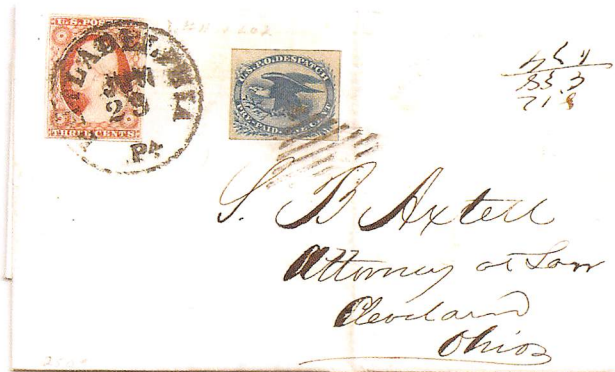 U.S. POS
THREE CENTS
PHILADELPHIA
29
Pa
U.S.P.O. DESPATCH
PRE-PAID
S. B Axtell
Attorney at Law
Cleveland
Ohio